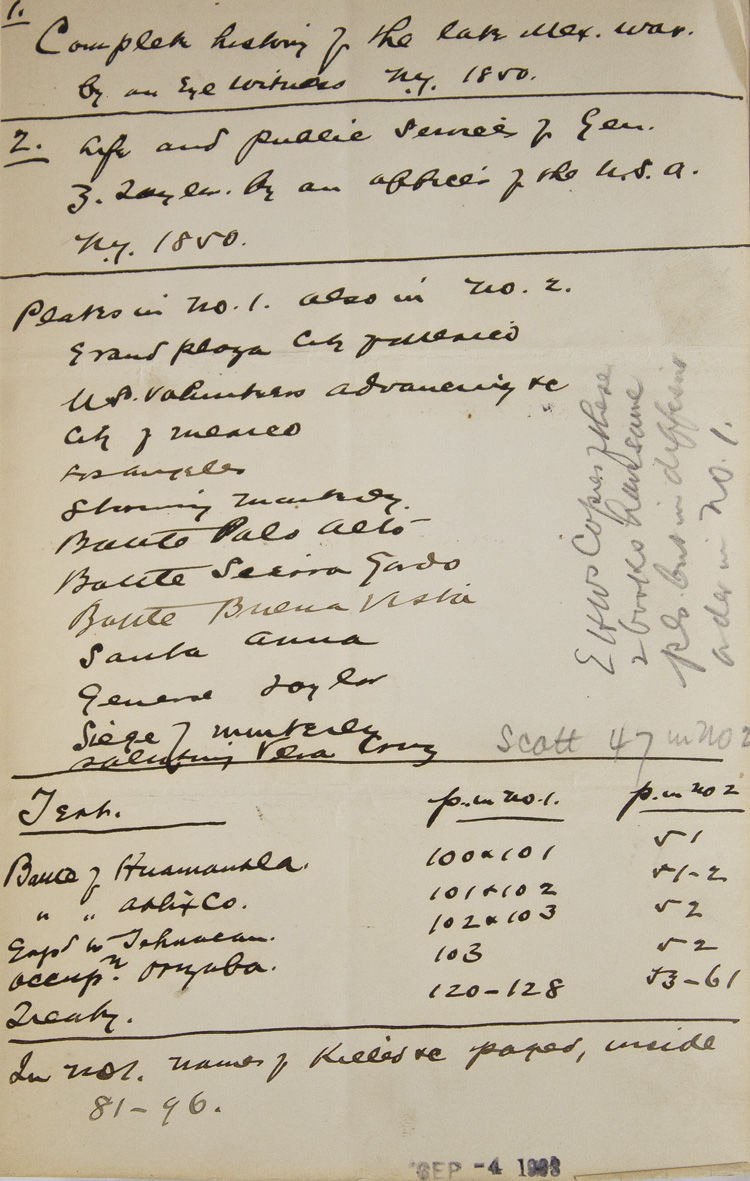 1.
Complete history of the late Mex. war.
by an Eye Witness N.Y. 1850.
2. Life and public services of Gen.
Z. Taylor. by an officer of the U.S.A.
N.Y. 1850.
Plates in No. 1. also in No. 2.
Grand plaza City of Mexico
U.S. Volunteers advancing &c
City of Mexico
Los Angeles
Storming Monterey.
Battle Palo Alto
Battle Sierra Gordo
Battle Buena Vista
Santa Anna
General Taylor
Siege of Monterey
Vera Cruz
Scott 47 in No 2
EHWs Copies of these
2 books have same
pls. but in different
order in No. 1.
Text. p. in No. 1. p. in No 2
Battle of Huamantla. 100 & 101 51
" " Atlixco. 101 & 102 51-2
Expd to Tehuacan. 102 & 103 52
Occupn. Orizaba. 103 52
Treaty. 120-128 53-61
In No 1. names of Killed &c paged, inside
81-96.
SEP -4